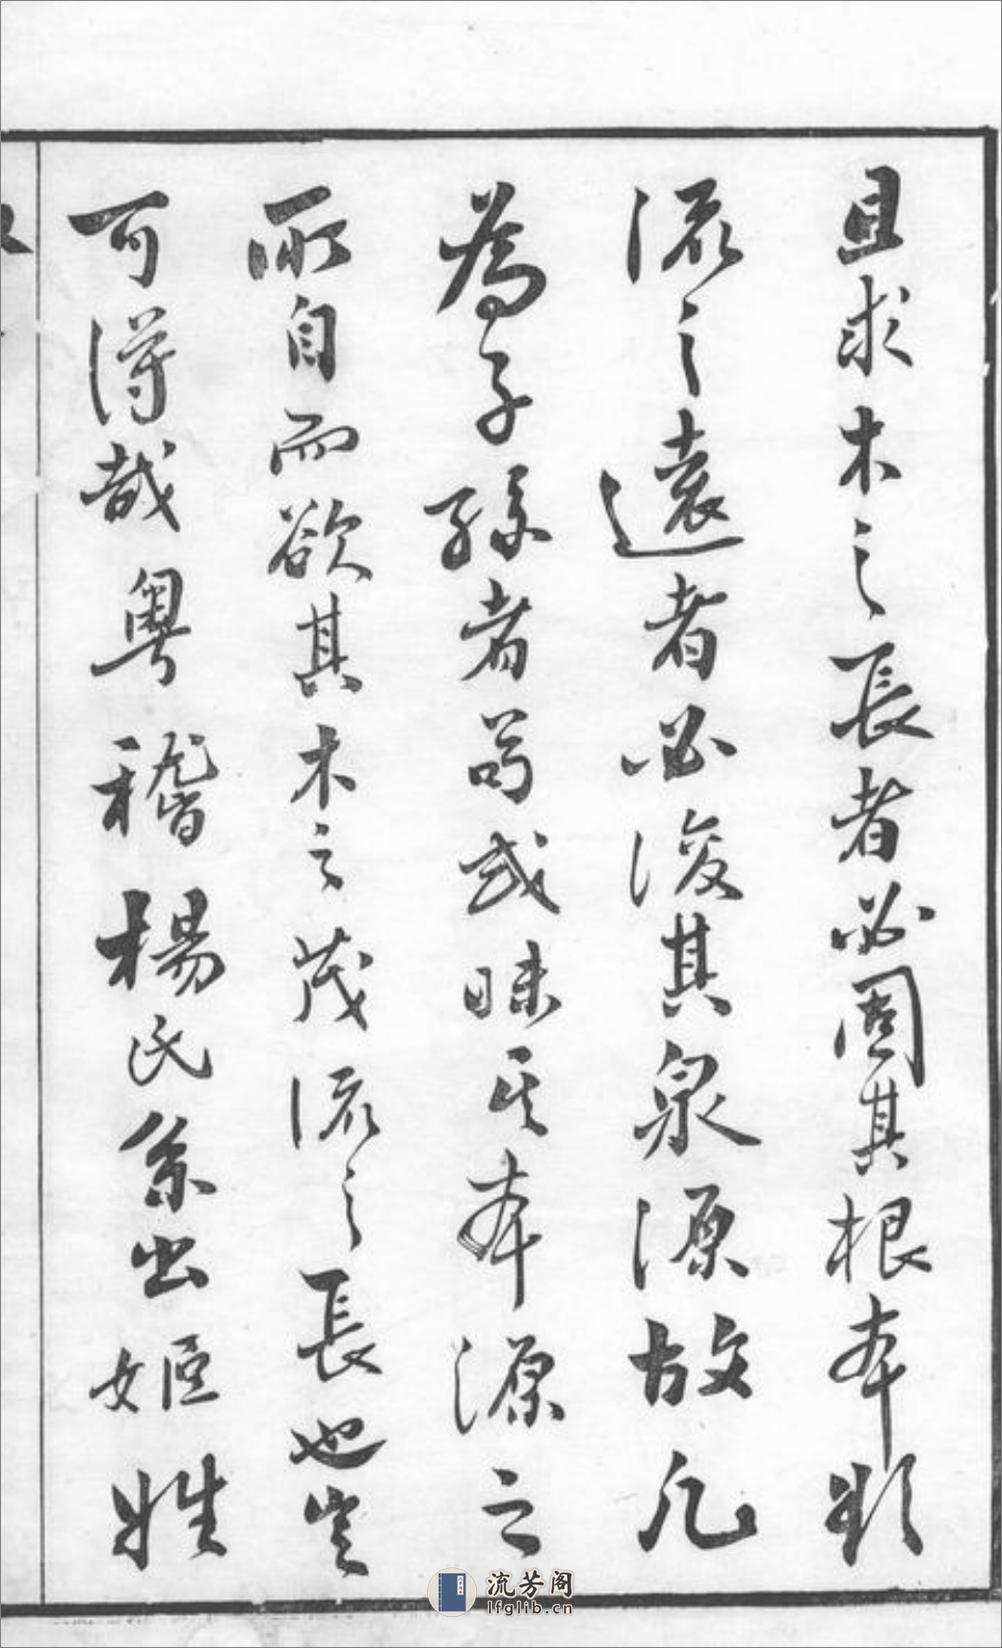 且求木之長者必固其根本欲
流之遠者必浚其泉源故凡
為子孫者苟或昧其本源之
所自而欲其木之茂流之長也豈
可得哉粵稽楊氏系出姬姓
流芳阁
lfglib.cn